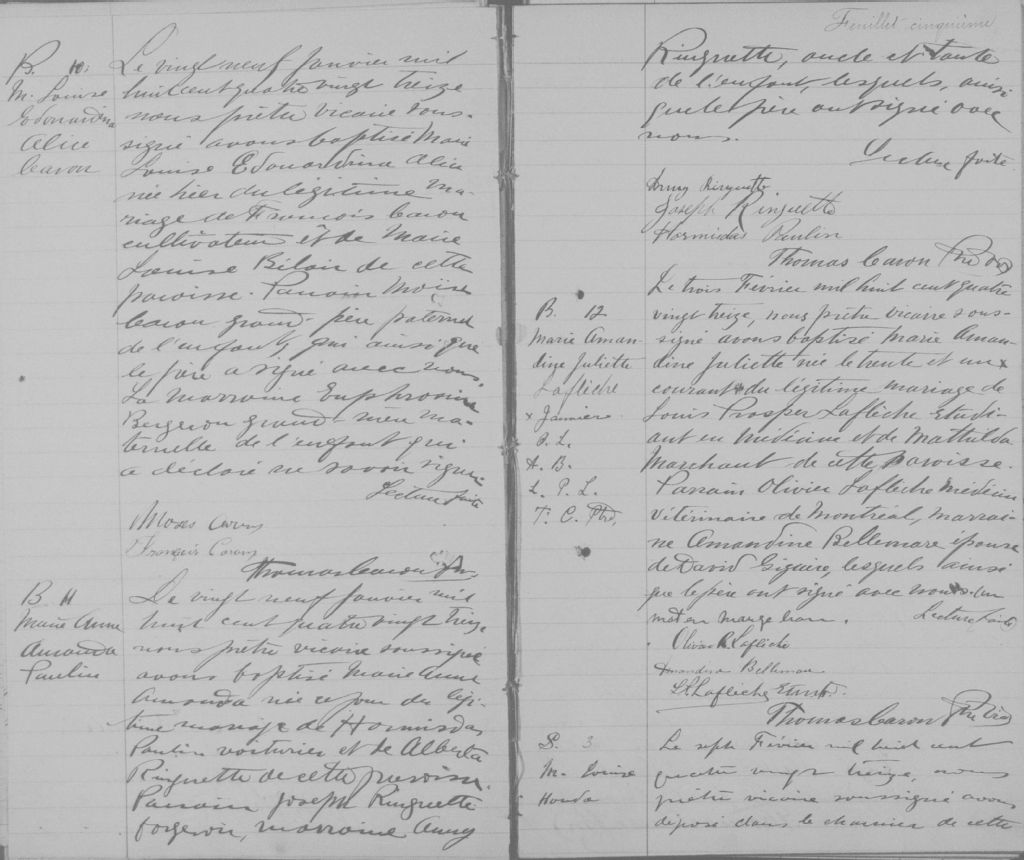 B. 10:
M. Louise
Edouardina
Alice
Caron
Le vingt neuf Janvier mil
huit cent quatre vingt treize
nous prêtre vicaire sous-
signé avons baptisé Marie
Louise Edouardina Alice
née hier du légitime Ma-
riage de François Caron
cultivateur et de Marie
Louise Bilair de cette
paroisse. Parrain Moïse
Caron grand-père paternel
de l'enfant, qui ainsi que
le père a signé avec nous.
La marraine Euphrosine
Bergeron grand-mère ma-
ternelle de l'enfant qui
a déclaré ne savoir signer
Lecture faite
Moses Caron
François Caron
Thomas Caron Ptr.
B 11
Marie Anne
Amanda
Paulin
Le vingt neuf Janvier mil
huit cent quatre vingt treize
nous prêtre vicaire soussigné
avons baptisé Marie Anne
Amanda née ce jour du légi-
time mariage de Hormisdas
Paulin voiturier et de Alberta
Ringuette de cette paroisse.
Parrain Joseph Ringuette
forgeron, marraine Anny
Feuillet cinquième
Ringuette, oncle et tante
de l'enfant, lesquels, ainsi
que le père ont signé avec
nous.
Lecture faite
Anny Ringuette
Joseph Ringuette
Hormisdas Paulin
Thomas Caron Ptre
B. 12
Marie Aman-
dine Juliette
Laflèche
x Janvier
O. L.
A. B.
L. P. L.
T. C. Ptre.
Le trois Février mil huit cent quatre
vingt treize, nous prêtre vicaire sous-
signé avons baptisé Marie Aman-
dine Juliette née le trente et un x
courant du légitime mariage de
Louis Prosper Laflèche Etudi-
ant en médicine et de Mathilda
Marchant de cette paroisse.
Parrain Olivier Laflèche Médecin
vétérinaire de Montréal, marrai-
ne Amandine Bellemare épouse
de David Giguère, lesquels ainsi
que le père ont signé avec nous. Un
mot en marge bon. Lecture faite
Olivier Laflèche
Amandine Bellemare
L.P. Laflèche Etud.
Thomas Caron Ptre
S. 3
M. Louise
Houde
Le sept Février mil huit cent
quatre vingt treize, nous
prêtre vicaire soussigné avons
déposé dans le charnier de cette